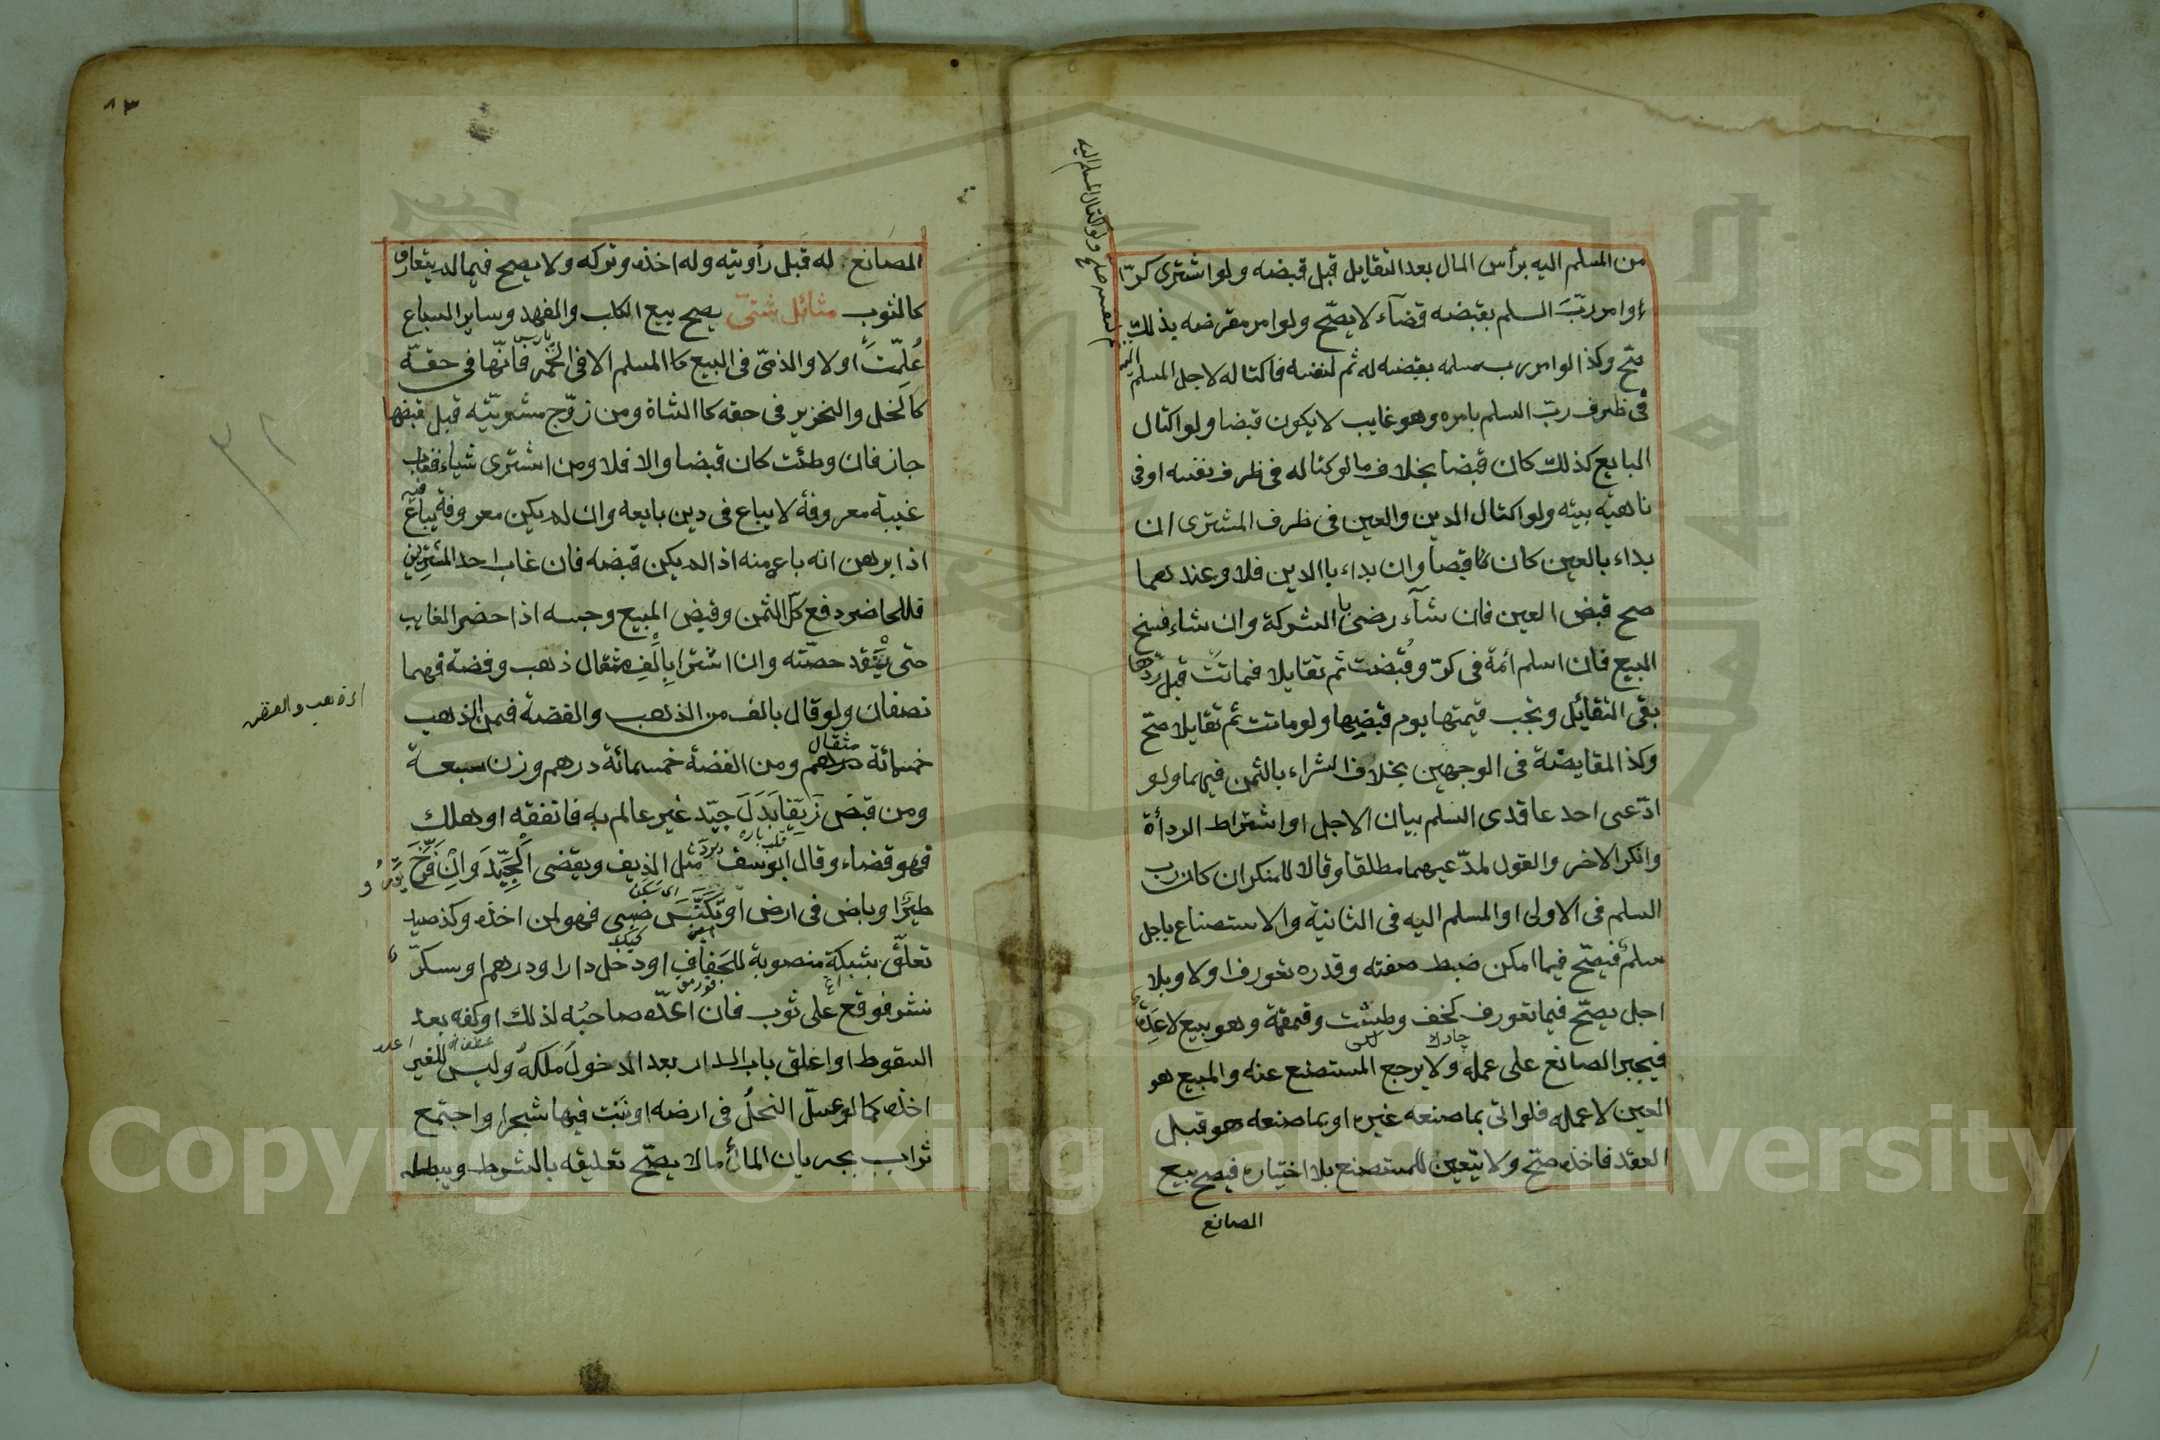 من المسلم اليه برأس المال بعد التقايل قبل قبضه ولو اشترى كرّا
وامر ربّ السلم بقبضه قضآء لا يصّح ولو امر مقرضه بذلك
صّح وكذا لو امر رب سلمه بقبضه له ثم لنفسه فاكتاله لاجل المسلم اليه
فى ظرف ربّ السلم بامره وهو غايب لا يكون قبضا ولو اكتال
البايع كذلك كان قبضا بخلاف ما لو كتاله فى ظرف نفسه او فى
ناهيّه بيته ولو اكتال الدين والعين فى ظرف المشترى ان
بداء بالعين كان قبضا وان بداء باالدين فلا وعندهما
صح قبض العين فان شآء رضى با الشركة وان شاء فسخ
المبيع فان اسلم ائمة فى كرّ وقُبضت ثم تقايلا فماتت قبل ردّها
بقى التقائيل وتجب قيمتها يوم قبضها ولو ماتت ثم تقايلا صّح
وكذ المقايضة فى الوجهين بخلاف الشراء بالثمن فيهما ولو
ادّعى احد عاقدى السلم بيان الاجل او اشتراط الردأة
وانكر الاخر والقول لمدّعيهما مطلقا وقالا للمنكر ان كان رب
السلم فى الاولى او المسلم اليه فى الثانية والاستصناع باجل
سلم فيصّح فيما امكن ضبط صفته وقدره تعورف اولا وبلا
اجل يصّح فيما تعورف كخف وطشت وقمقمة وهو بيع لا عِدَة
فيجبر الصانع على عمله ولا يرجع المستصنع عنه والمبيع هو
العين لا عمله فلو اتى بما صنعه غيره او بما صنعه هو قبل
العقد فاخذه صّح ولا يتعين للمستصنع بلا اختياره فيصح بيع
المصانع
٨٣
المصانع له قبل رأويته وله اخذه وتركه ولا يصح فيما لم يتعارف
كالثوب مثائل شتى يصح بيع الكلب والفهد وساير السباع
عُلِمّت اولا والذمّى فى البيع كاالمسلم الا فى الخمر فانّها فى حقه
كالخل والخزير فى حقه كاالشاة ومن زوّج مشريّته قبل قبضها
جاز فان وطئت كان قبضا والا فلا ومن اشترى شياء فغاب
غيبة معروفة لا يباع فى دين بايعه وان لم يكن معروفة يباع فيه
اذا برهن انه باع منه اذا لم يكن قبضه فان غاب احد المشتريين
فللحاضر دفع كلّ الثمن وقبض المبيع وحبسه اذا حضر الغايب
حتى ينقد حصّته وان اشترا بِاَلْفِ مثقال ذهب وفضة فهما
نصفان ولو قال بالف من الذهب والفضة فمن الذهب
خمسمائة مثقال ومن الفضة خمسمائة درهم وزن سبعة
ومن قبض زَيفًا بَدَلَ جيّد غير عالم به فانفقه او هلك
فهو قضاء وقال ابو يسف يردّ مثل الذيف ويقضى اَلْجَيِّدَ وَاِنْ فَرَّخَ
طيرًا وباض فى ارض او تَكَنَّسَ ضبى فهو لمن اخذه وكذ صيد
تعلّق بشبكة منصوبة للجَفافِ او دخل دارا ودرهم او سكرّ
نشر فوقع على ثوب فان اعدّه صاحبُه لذلك او كفه بعد
السقوط او اغلق باب الدار بعد الدخول مَلَكَهُ وليس للغير
اخذه كما لو عسلّ النحلُ فى ارضه او نَبَت فيها شجرا واجتمع
تراب بجريان المأ ما لا يصّح تعليقه بالشرط ويبطله